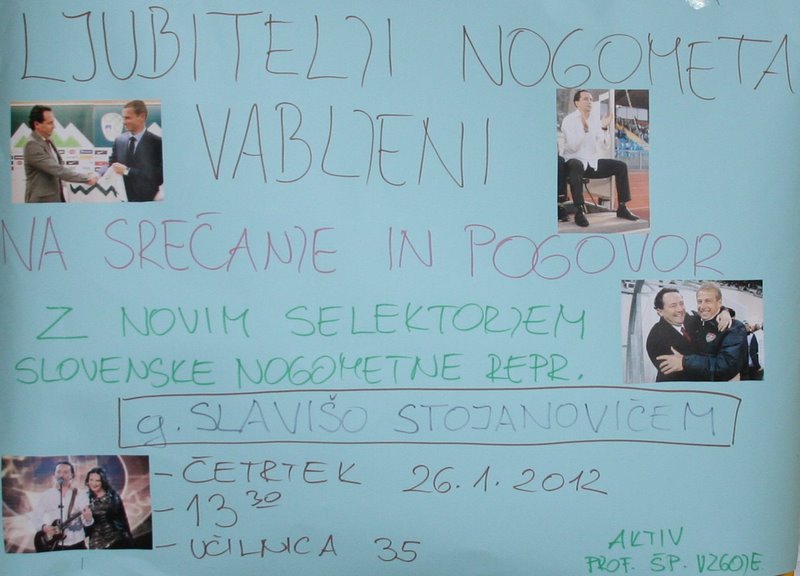 LJUBITELJI NOGOMETA
VABLJENI
NA SREČANJE IN POGOVOR
Z NOVIM SELEKTORJEM
SLOVENSKE NOGOMETNE REPR.
g. SLAVIŠO STOJANOVIČEM
- ČETRTEK 26.1.2012
- 13 30
- UČILNICA 35
AKTIV
PROF. ŠP. VZGOJE.